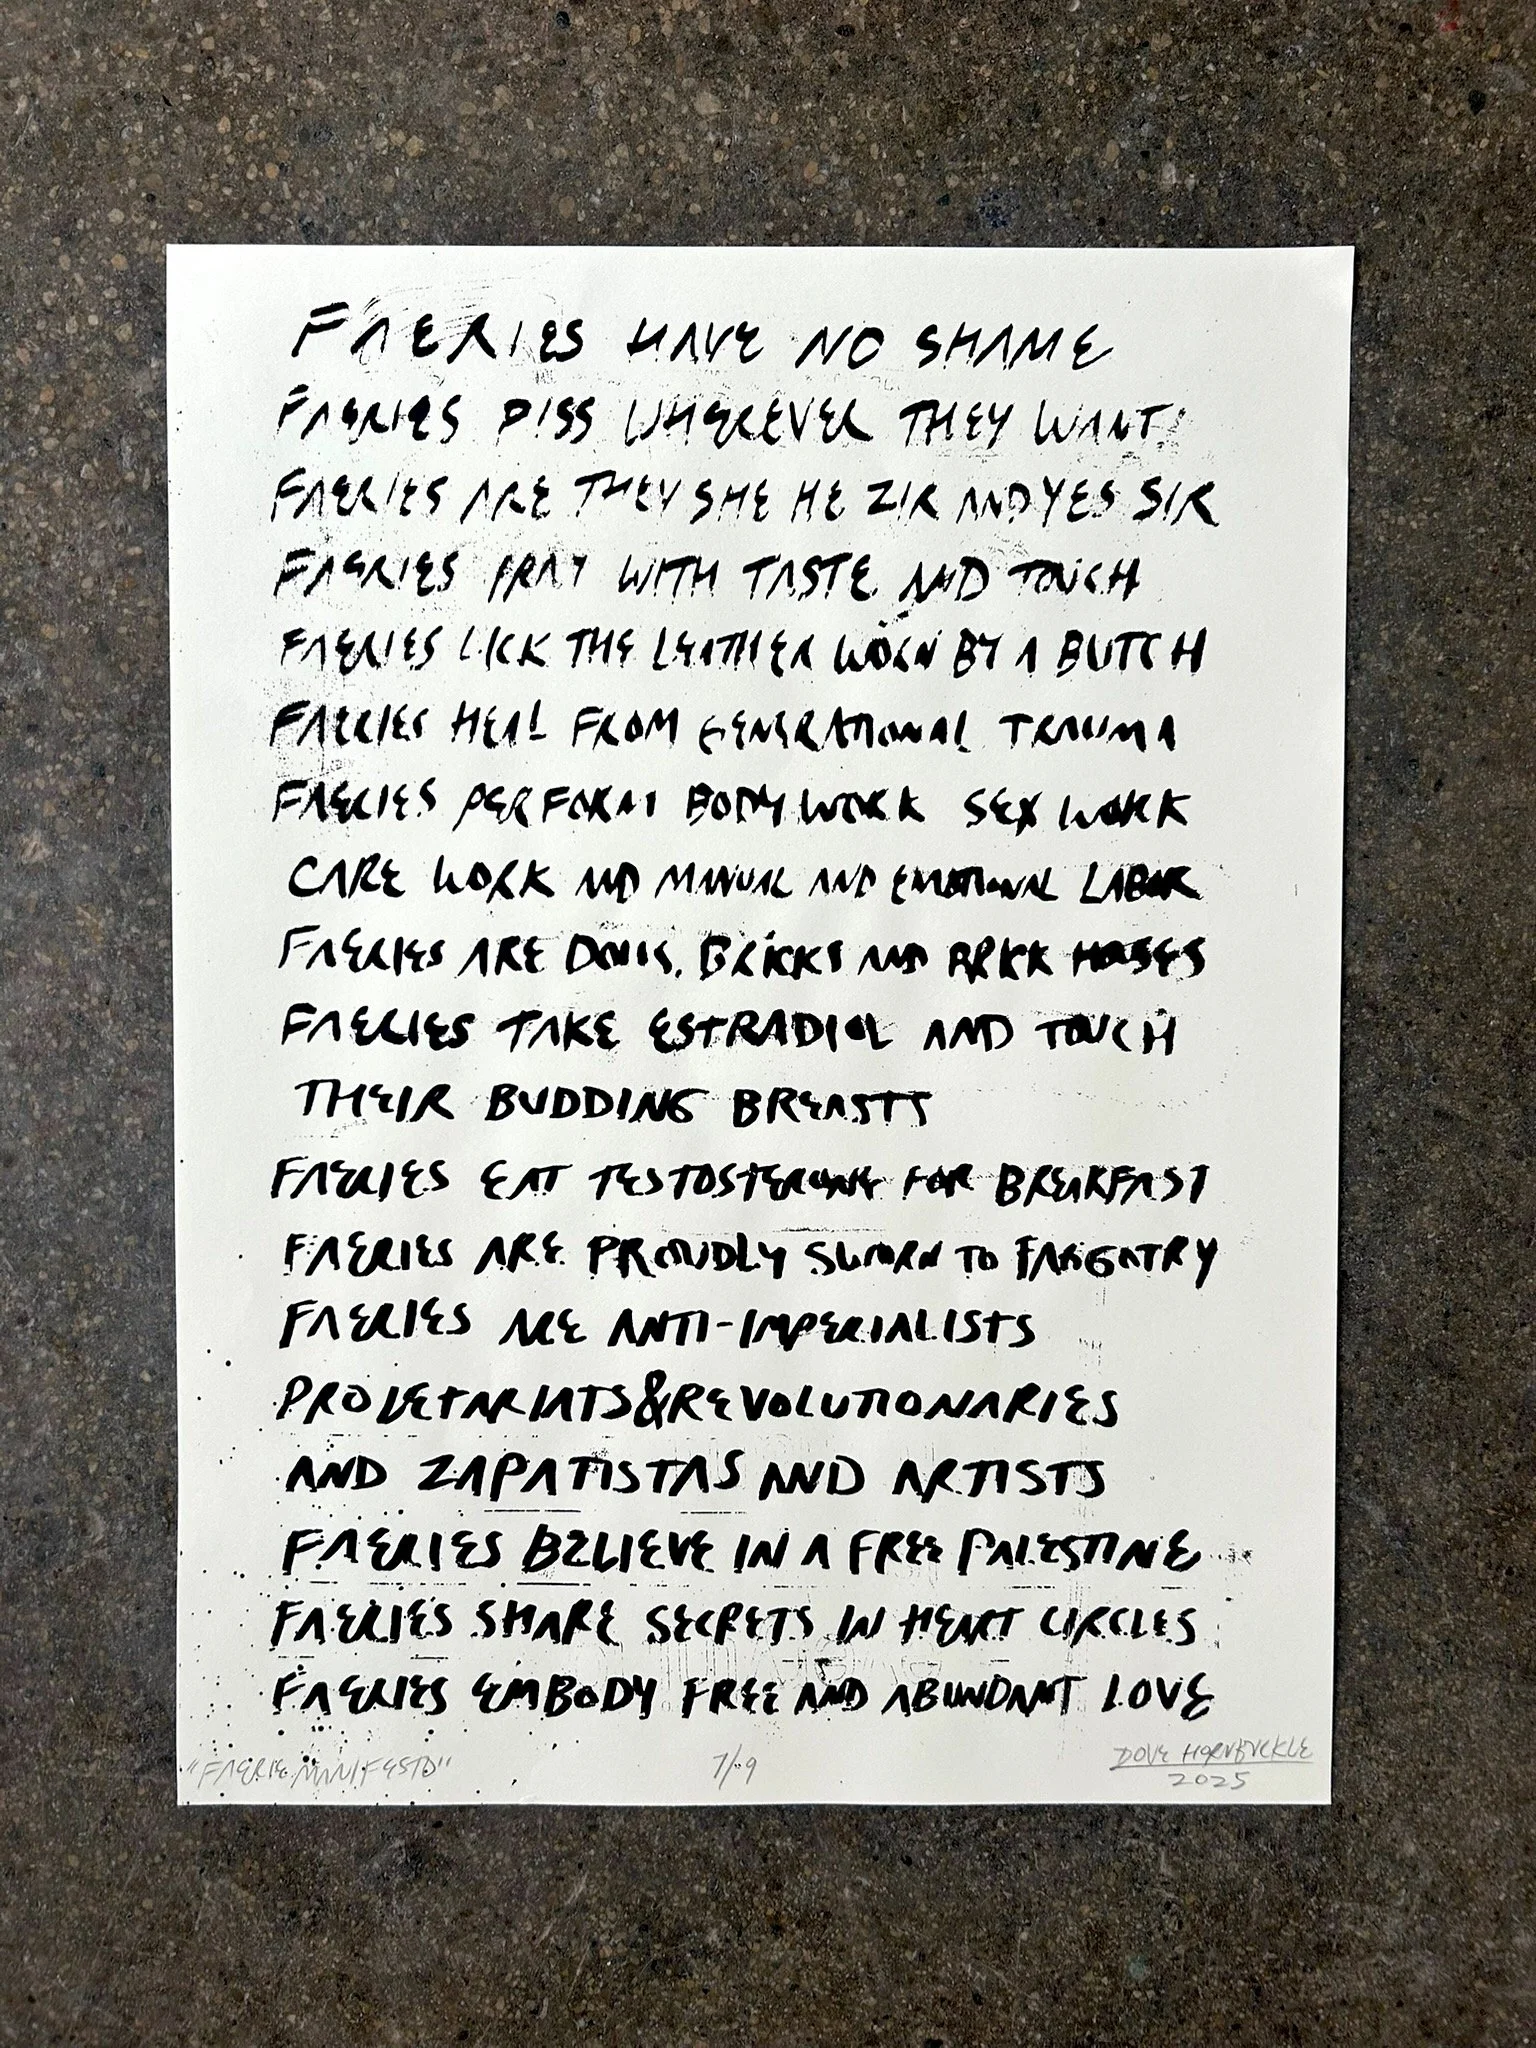 FAERIES HAVE NO SHAME
FAERIES PISS WHEREVER THEY WANT!
FAERIES ARE THEY SHE HE ZIR AND YES SIR
FAERIES PRAY WITH TASTE AND TOUCH
FAERIES LICK THE LEATHER WORN BY A BUTCH
FAERIES HEAL FROM GENERATIONAL TRAUMA
FAERIES PERFORM BODY WORK SEX WORK
CARE WORK AND MANUAL AND EMOTIONAL LABOR
FAERIES ARE DOLLS, BRICKS AND BRICK HOUSES
FAERIES TAKE ESTRADIOL AND TOUCH
THEIR BUDDING BREASTS
FAERIES EAT TESTOSTERONE FOR BREAKFAST
FAERIES ARE PROUDLY SWORN TO FAGGOTRY
FAERIES ARE ANTI-IMPERIALISTS
PROLETARIATS & REVOLUTIONARIES
AND ZAPATISTAS AND ARTISTS
FAERIES BELIEVE IN A FREE PALESTINE
FAERIES SHARE SECRETS IN HEART CIRCLES
FAERIES EMBODY FREE AND ABUNDANT LOVE
"FAERIE MINIFESTO" 7/9 DOVE HORNBUCKLE
2025